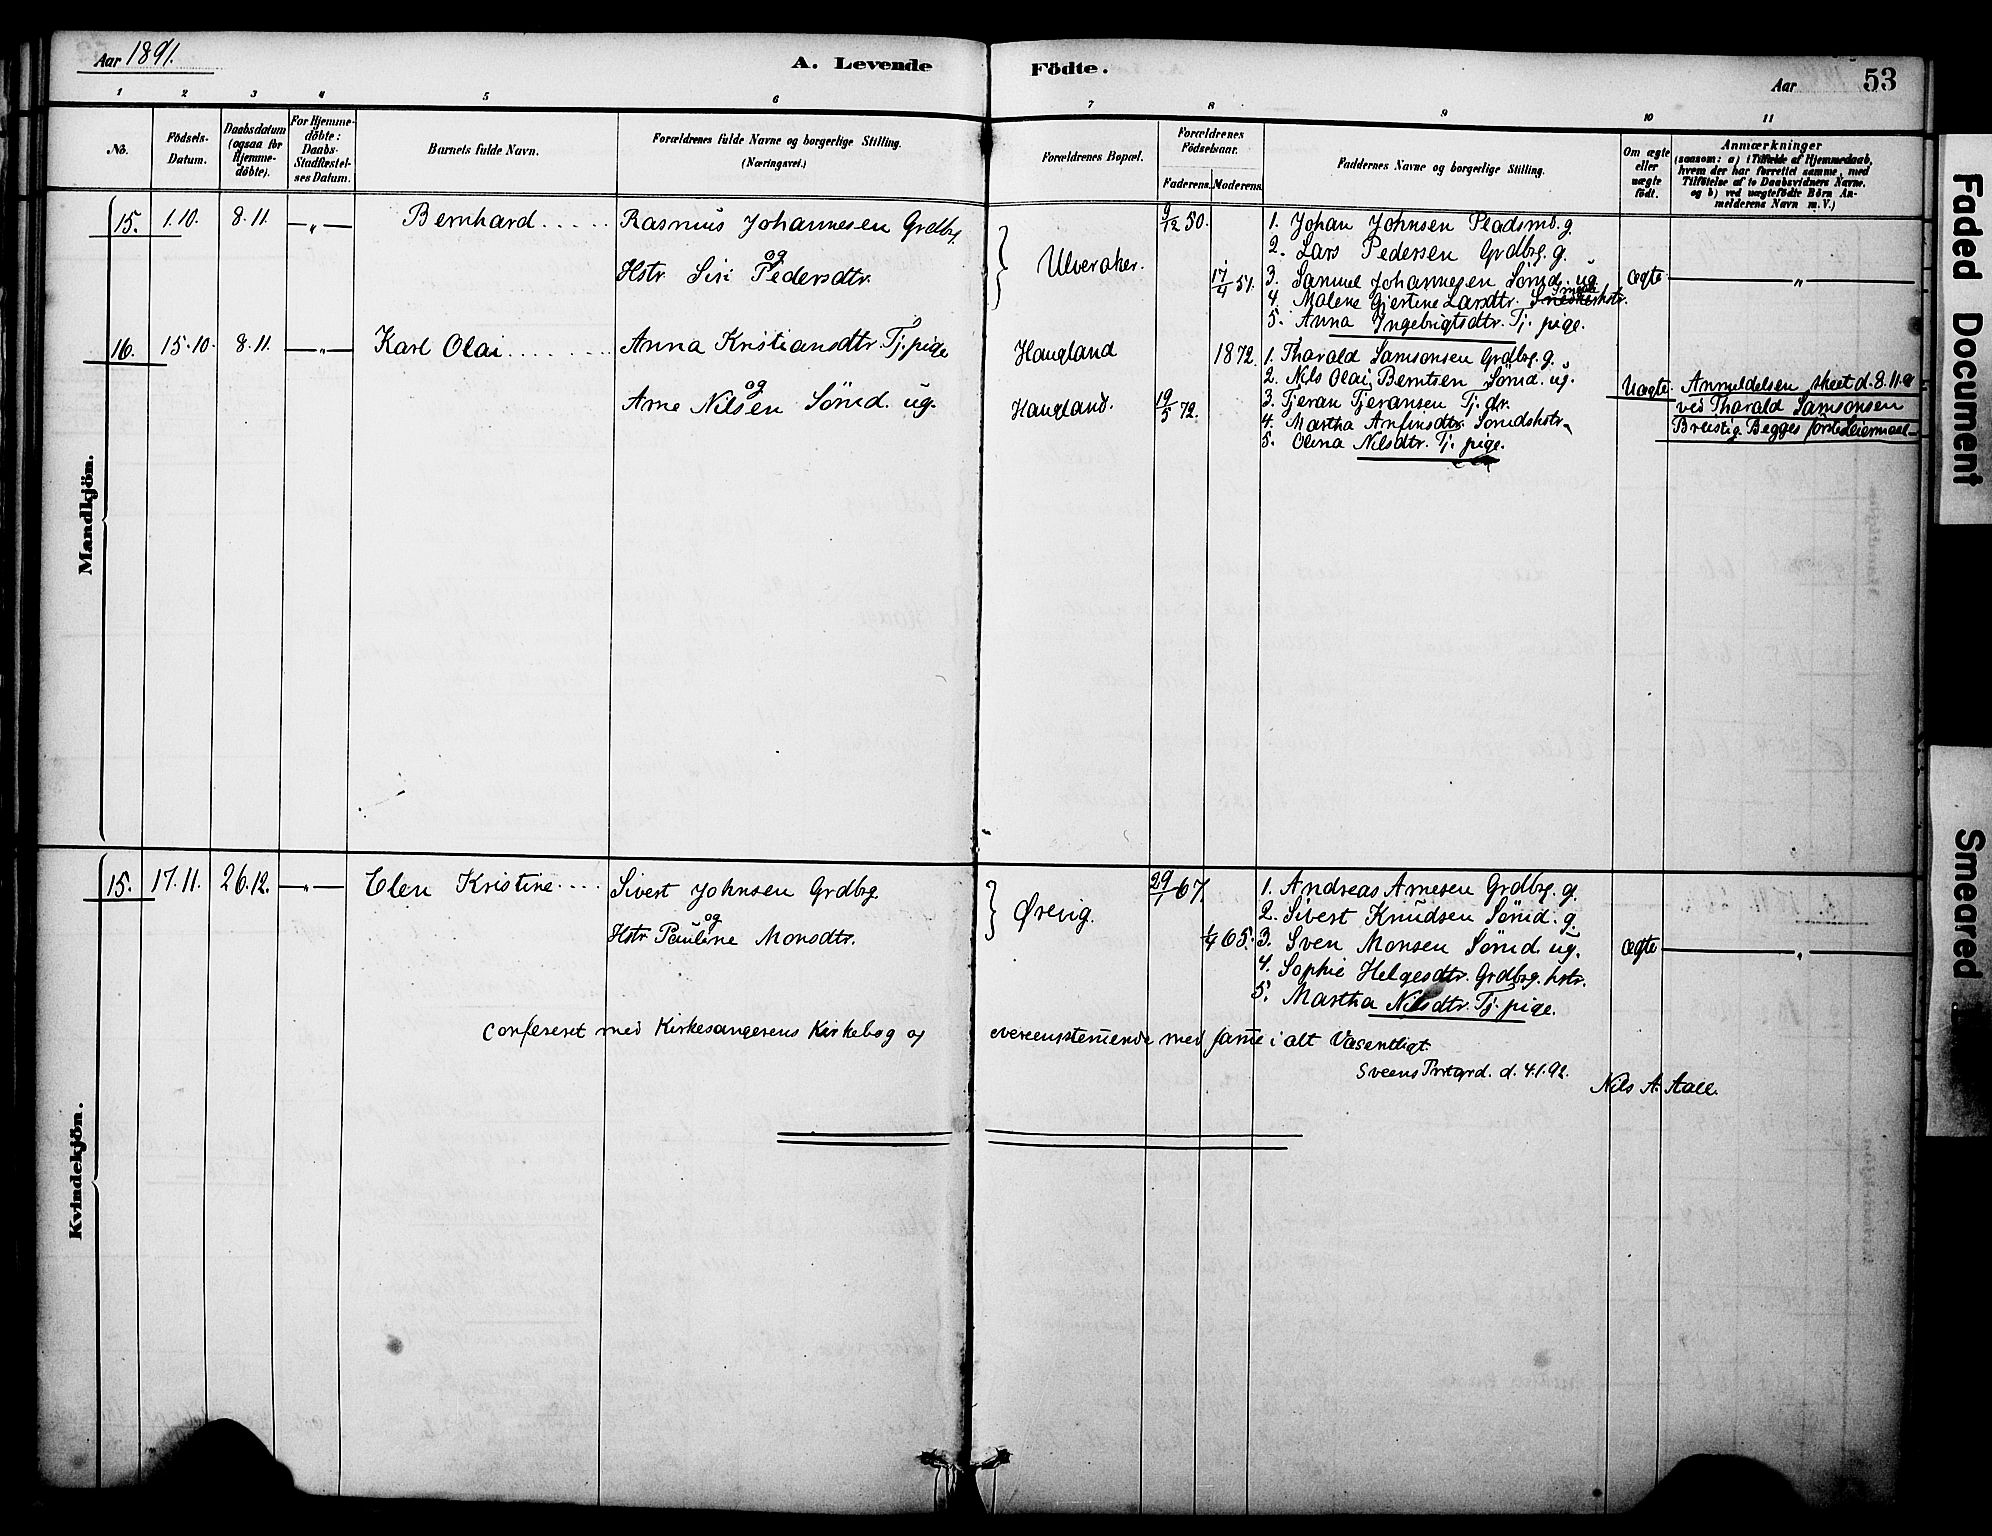 Aar 1891.
A. Levende Födte.
Aar 53
1 2 3 4 5 6 7 8 9 10 11
No.
Födsels-Datum.
Daabsdatum (ogsaa for Hjemme-döbte).
For Hjemme-döbte: Daabs-Stadfæstel-ses Datum.
Barnets fulde Navn.
Forældrenes fulde Navne og borgerlige Stilling. (Næringsvei.)
Forældrenes Bopæl.
Forældrenes Födselsaar.
Faderens. Moderens.
Faddernes Navne og borgerlige Stilling.
Om ægte eller uægte födt.
Anmærkninger
(saasom: a) i Tilfælde af Hjemmedaab, hvem der har forrettet samme, med Tilföielse af to Daabsvidners Navne, og b) ved uægtefödte Börn An-melderens Navn m. V.)
Mandkjön.
15. 1.10. 8.11. —"— Bernhard..... Rasmus Johannesen Grdbrg.
og
Hstr. Siri Pedersdtr.
Ulveraker.
9/12 50.
17/4 51.
1. Johan Johnsen Pladsmd. g.
2. Lars Pedersen Grdbrg. g.
3. Samuel Johannesen Sömd. ug
4. Malene Gjertine Larsdtr. hstr.
5. Anna Ingebrigtsdtr. Tj. pige.
ægte —"—
16. 15.10. 8.11. —"— Karl Olai....... Anna Kristiansdtr. Tj. pige
og
Arne Nilsen Sömd. ug.
Haugland
Haugland.
1872
19/5 72.
1. Tharald Samsonsen Grdbrg. g.
2. Nils Olai Berntsen Sömd. ug.
3. Tjeran Tjeransen Tj. dr.
4. Martha Anfinsdtr. Sömdshstr.
5. Olina Nilsdtr. Tj. pige.
Uægte.
Anmeldelsen skeet d. 8.11.91
ved Tharald Samsonsen
Breistig. Begges förste Leiermaal
Kvindekjön.
15. 17.11. 26.12. —"— Elen Kristine.... Sivert Johnsen Grdbrg.
og
Hstr Pauline Monsdtr.
Örevig.
29/1 67.
1/4 65.
1. Andreas Arnesen Grdbrg. g.
2. Sivert Knudsen Sömd. g.
3. Sven Monsen Sömd. ug.
4. Sophie Helgesdtr. Grdbrg. hstr.
5. Martha Nilsdtr. Tj. pige.
ægte —"—
Confereret med Kirkesangerens Kirkebog og overeensstemende med same i alt Væsentligt.
Sveens Prstgrd. d. 4.1.92.
Nils A. Aall.
Faded Document
Smeared